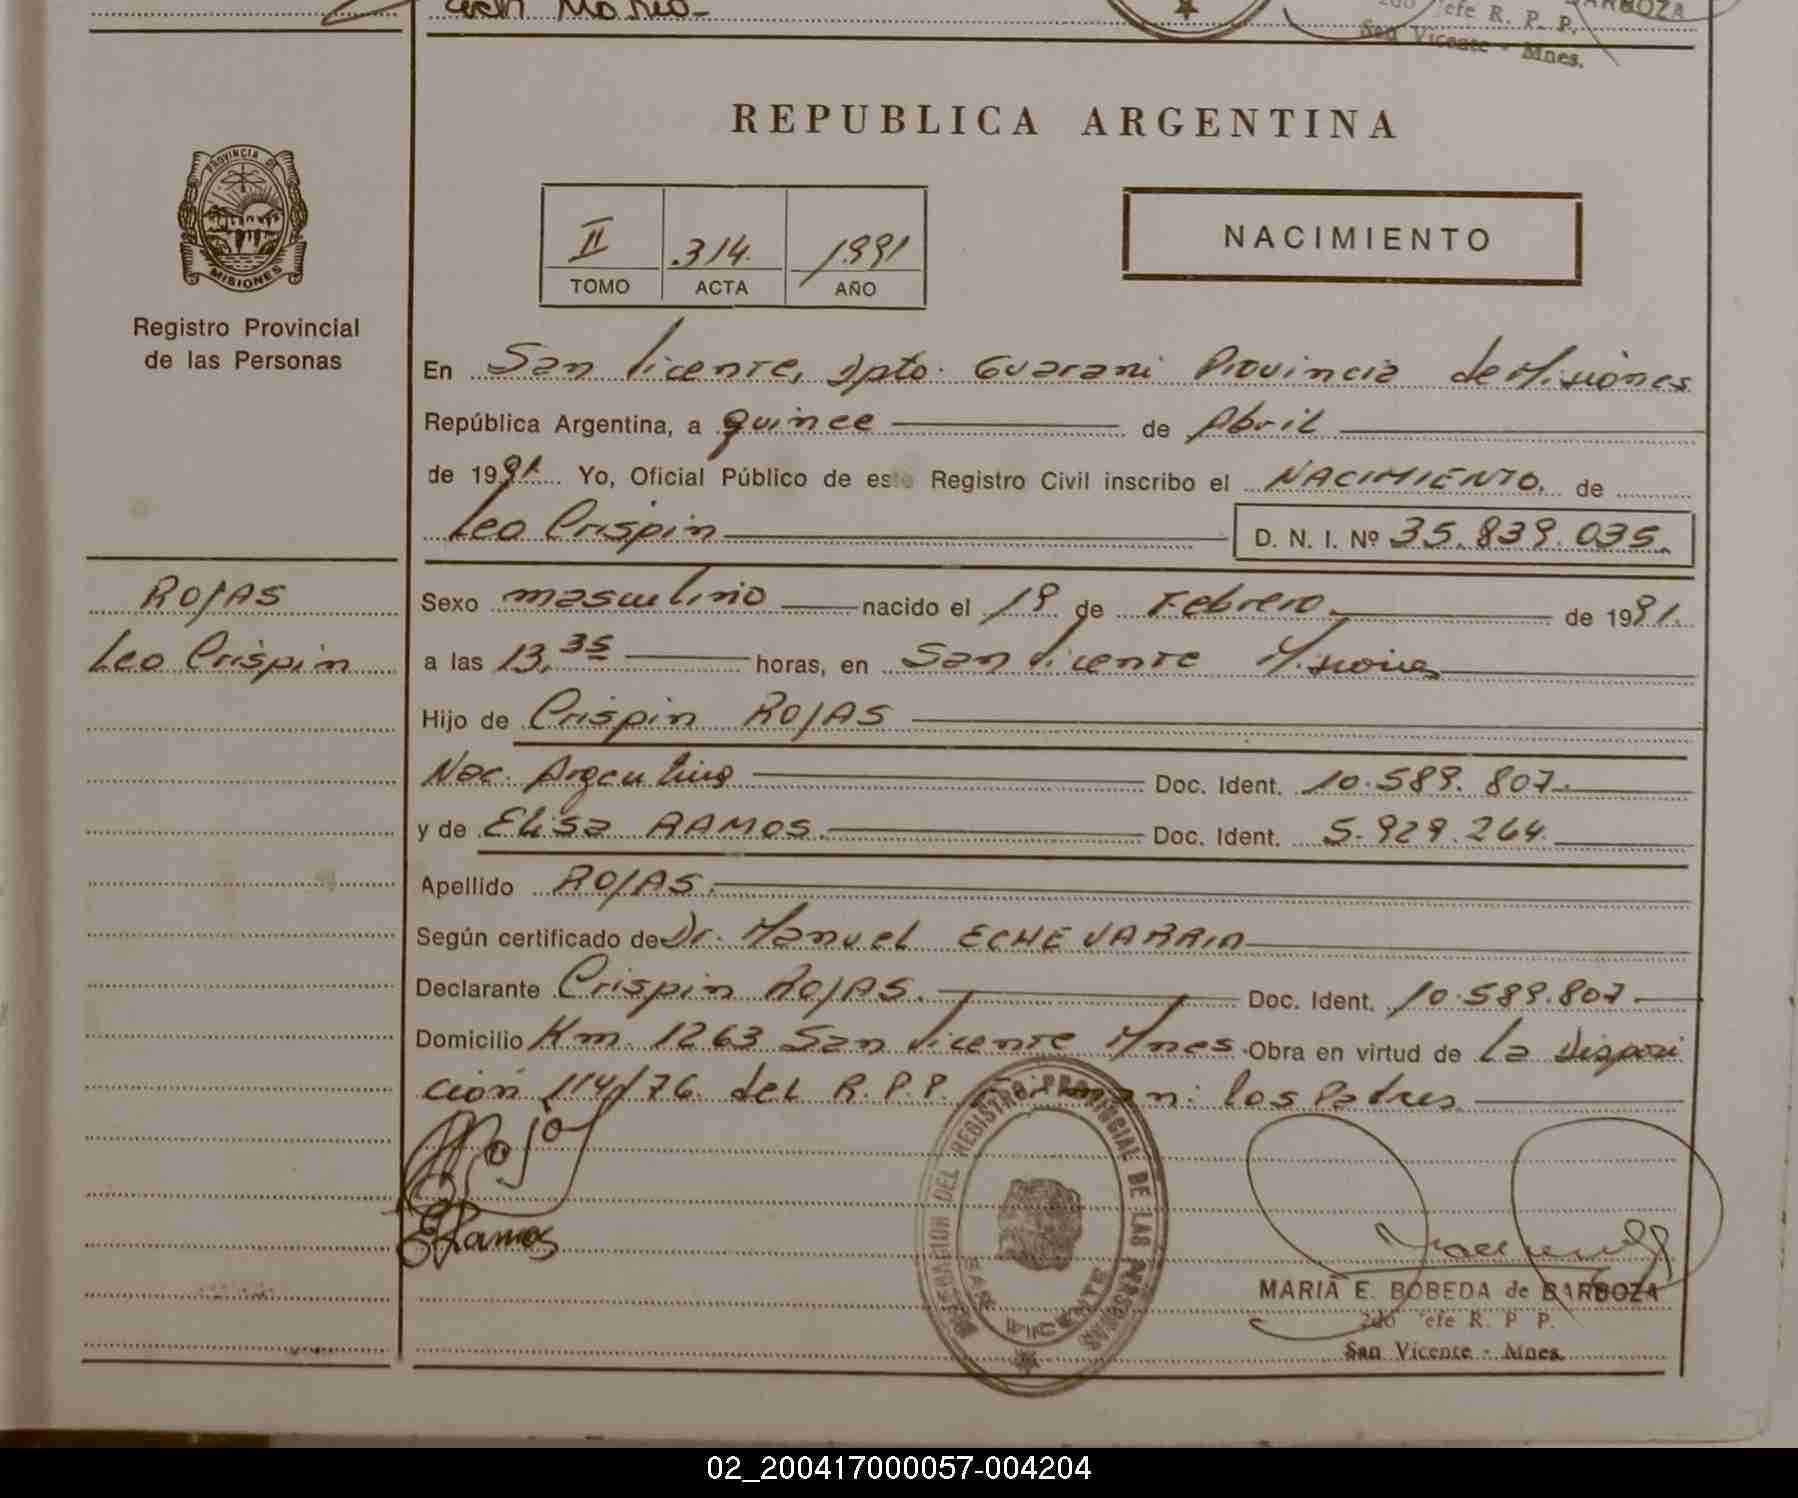 REPUBLICA ARGENTINA
PROVINCIA DE
MISIONES
Registro Provincial
de las Personas
II 314. 1991
TOMO ACTA AÑO
NACIMIENTO
En San Vicente, Dpto. Guarani Provincia de Misiones
República Argentina, a quince de Abril
de 1991. Yo, Oficial Público de este Registro Civil inscribo el NACIMIENTO. de
Leo Crispin D. N. I. Nº 35.839.035.
ROJAS
Leo Crispin
Sexo masculino nacido el 19 de Febrero. de 1991.
a las 13,35 horas, en San Vicente Misiones
Hijo de Crispin ROJAS
Nac. Argentino Doc. Ident. 10.589.807.
y de Elisa RAMOS. Doc. Ident. 5.929.264.
Apellido ROJAS.
Según certificado de Dr. Manuel ECHEVARRIA
Declarante Crispin ROJAS. Doc. Ident. 10.589.807
Domicilio Km. 1263 San Vicente Mnes. Obra en virtud de la Disposi
ción 114/76. del R.P.P. Firman: los Padres
Rojas
ERamos
DELEGACION DEL REGISTRO PROVINCIAL DE LAS PERSONAS
SAN VICENTE
MARIA E. BOBEDA de BARBOZA
2do Jefe R. P. P.
San Vicente - Mnes.
02_200417000057-004204